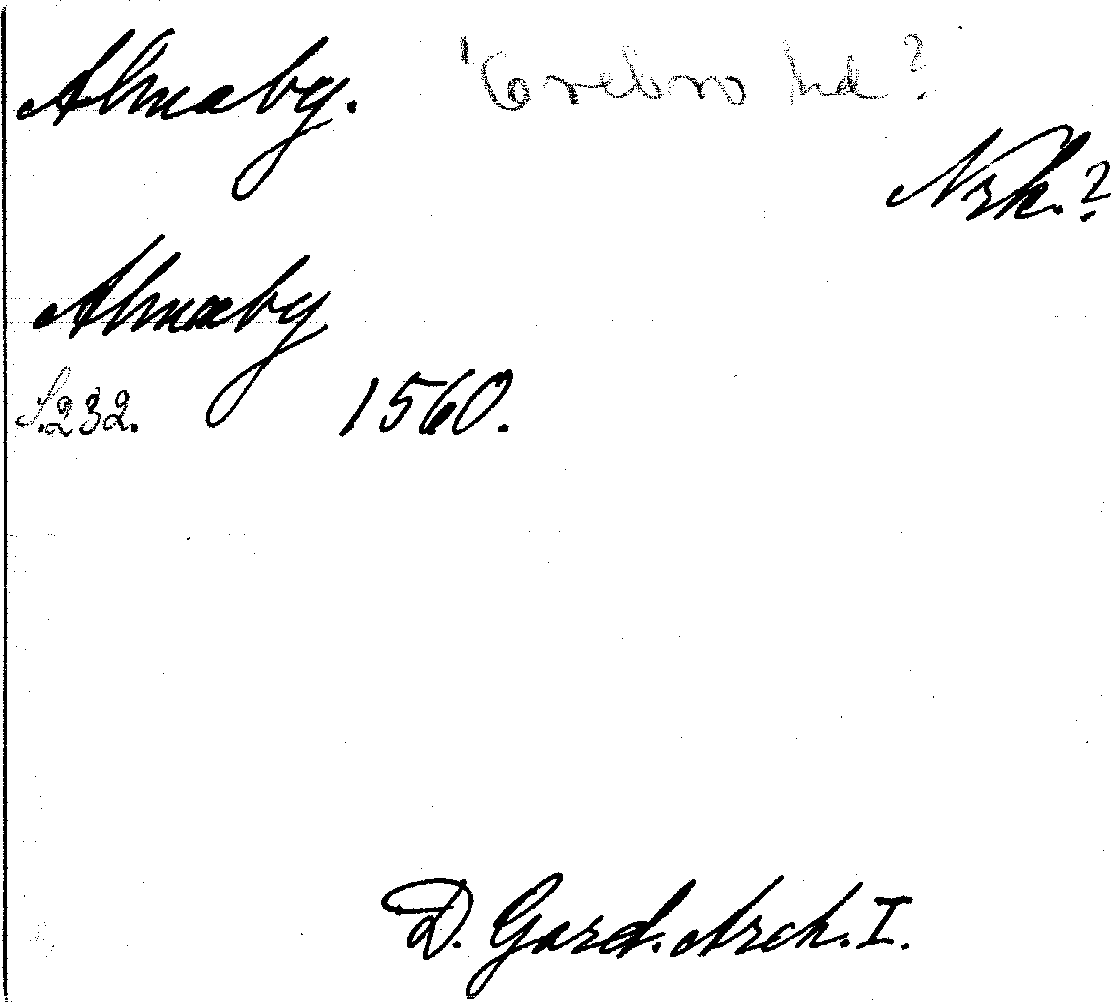 Almaby. Örebro hd?
Nrk.?
Almaby
S.232. 1560.
D. Gard. Arch. I.